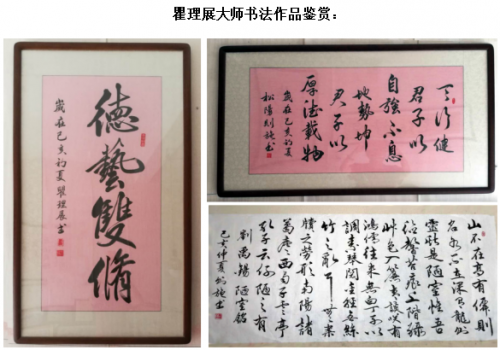 瞿理展大师书法作品鉴赏：
德藝雙脩
歲在己亥初夏 瞿理展書
天行健
君子以
自強不息
地勢坤
君子以
厚德載物
歲在己亥初夏
山不在高有僊則
名水不在深有龍則
靈斯是陋室惟吾
德馨苔痕上階綠
草色入簾青談笑有
鴻儒往來無白丁可以
調素琴閱金經無絲
竹之亂耳無案
牘之勞形南陽諸
葛廬西蜀子雲亭
孔子云何陋之有
劉禹錫陋室銘
己亥仲夏